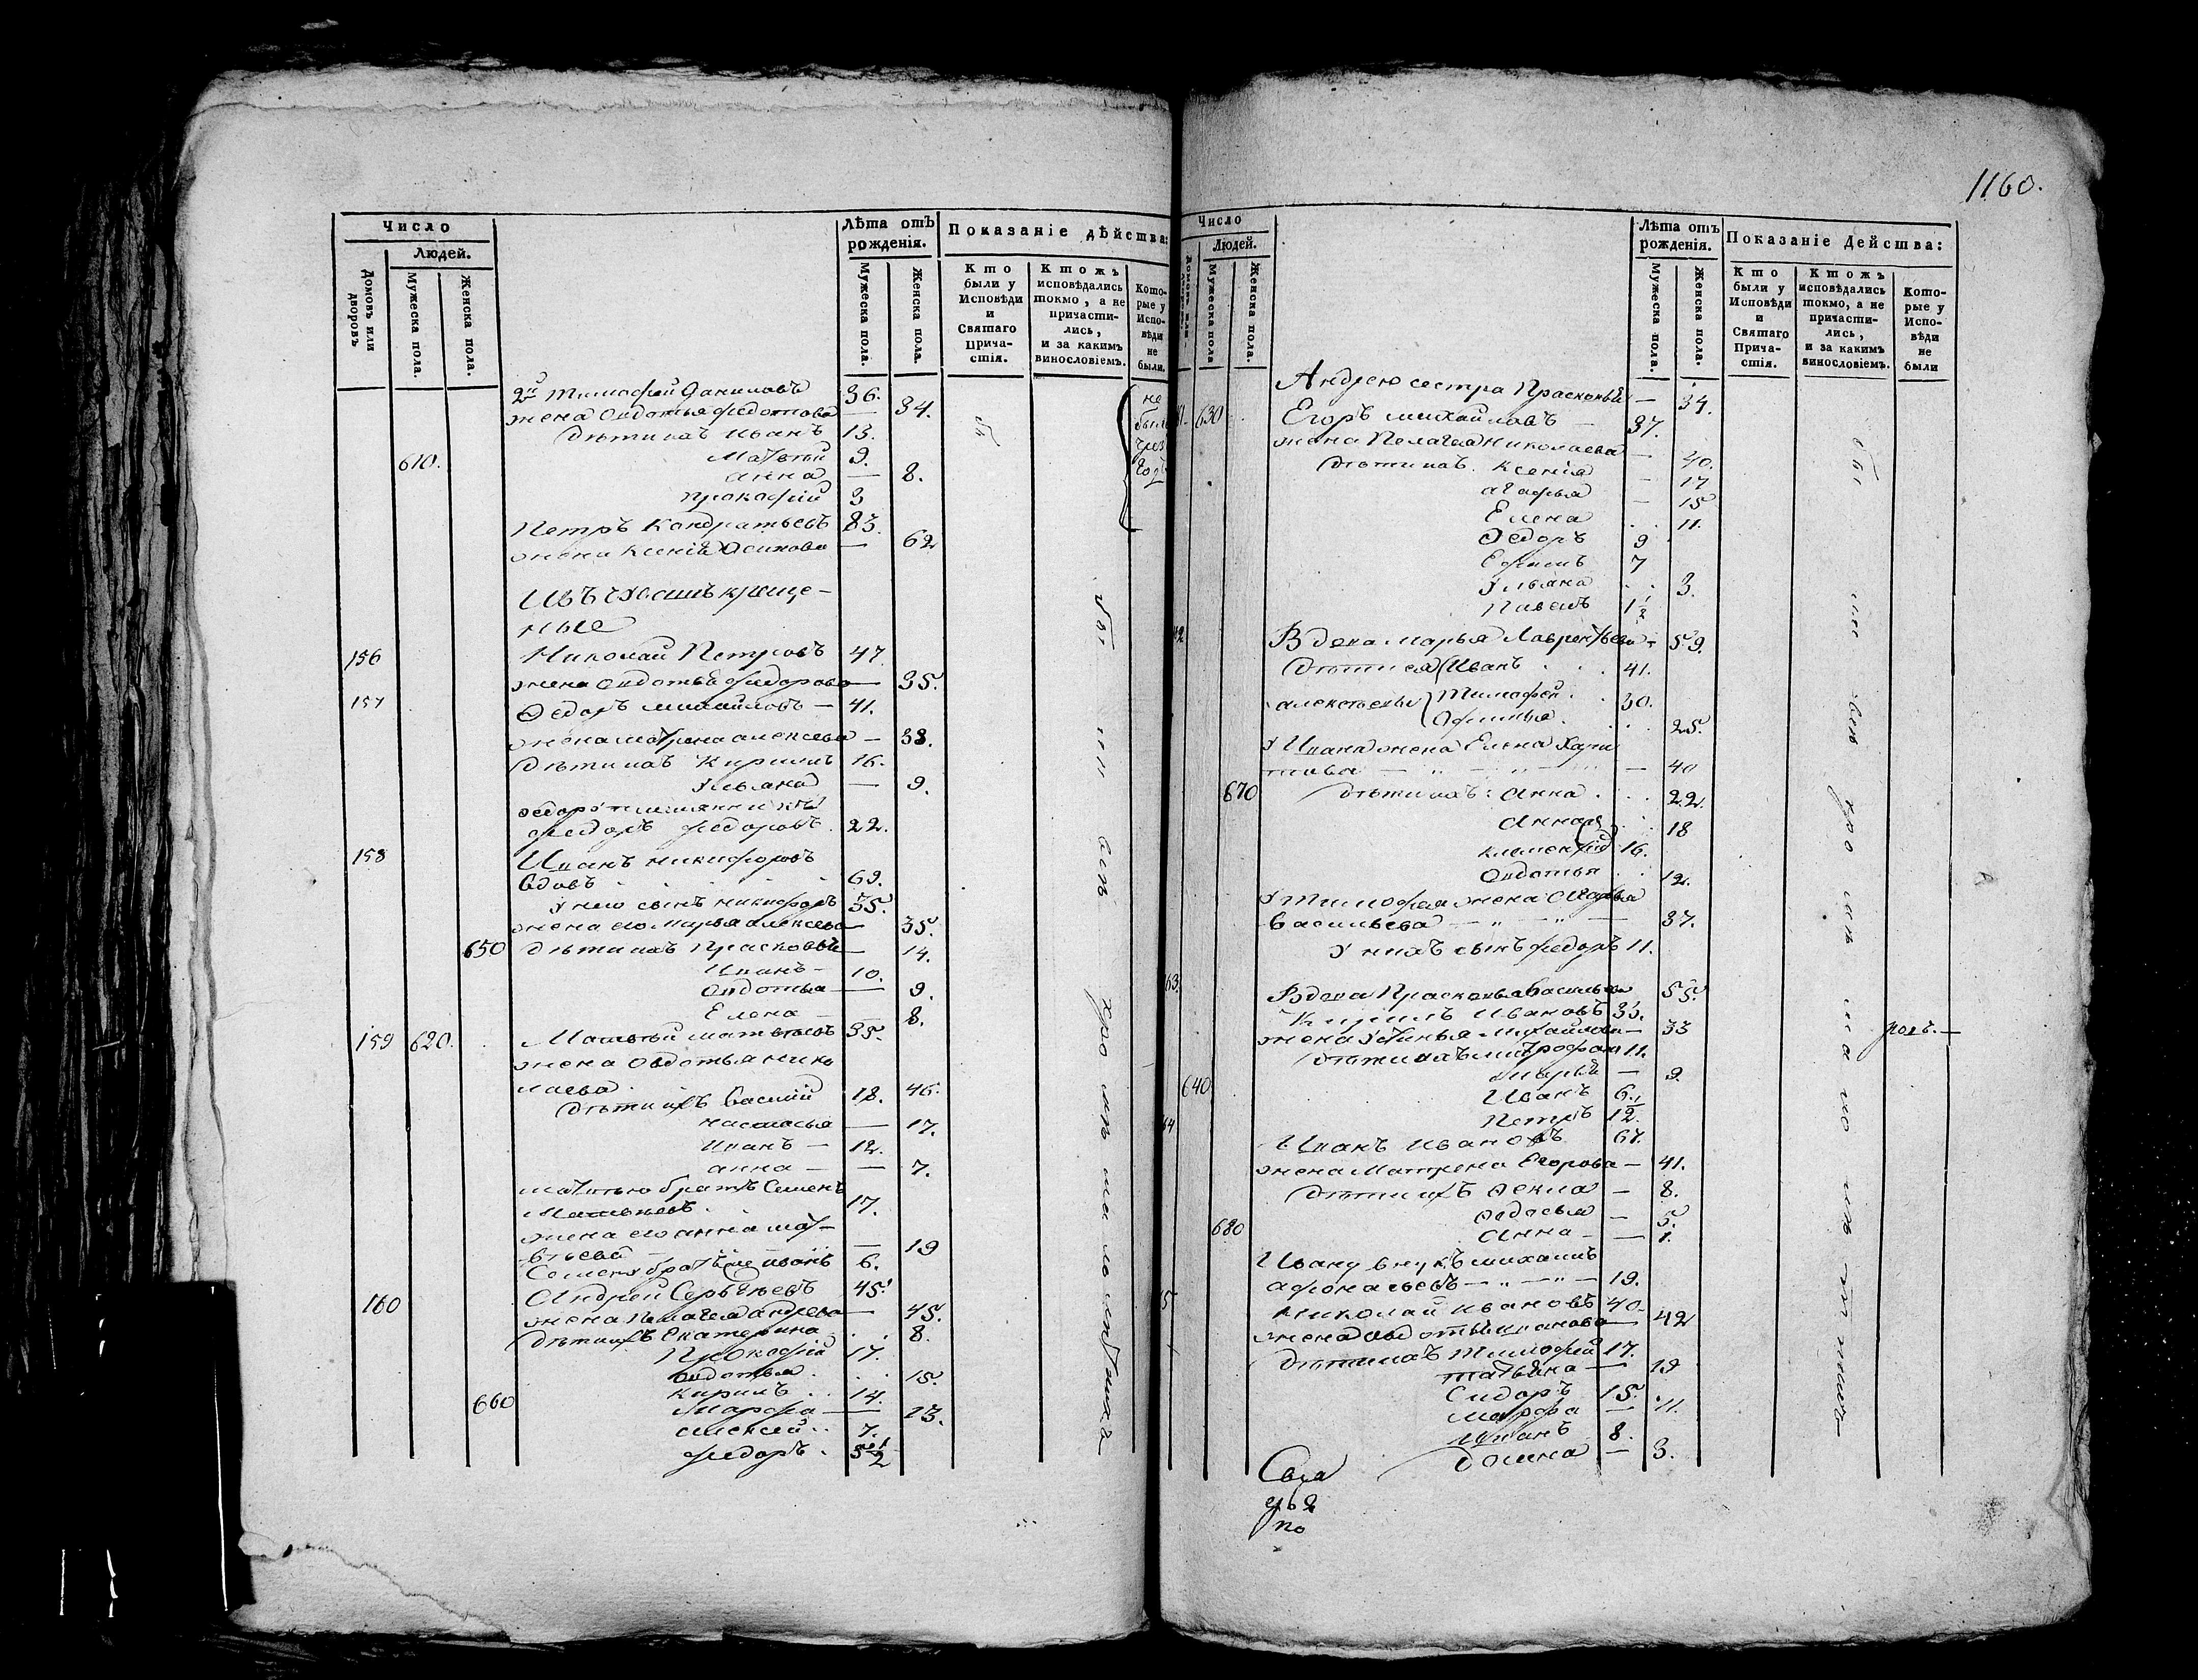 1160.
Число
Людей.
Домовъ или дворовъ
Мужеска пола.
Женска пола.
Лѣта отъ рожденія.
Мужеска пола.
Женска пола.
Показаніе дѣйства:
Кто были у Исповѣди и Святаго Причастія.
Ктожъ исповѣдались токмо, а не причастились, и за какимъ винословіемъ.
Которые у Исповѣди не были.
2й Тимофей Даниловъ 36.
жена Овдотья федотова — 34.
дѣти ихъ Иванъ 13.
610. Матвѣй 9.
анна — 8.
прокофій 3
Петръ Кондратьевъ 83.
жена Ксенія Осипова — 62
не были
годъ
креще-
ные
156 Николай Петровъ 47.
жена Овдотья федорова — 35.
157 Федоръ михайловъ — 41.
жена матрена алексева — 38.
дѣти ихъ Кирилъ 16.
Ульяна — 9.
федору племянникъ
федоръ федоровъ. 22.
158 Иванъ никифоровъ
вдовъ 69.
У него сынъ никифоръ 35.
жена его марья алексева 35.
650 дѣти ихъ Прасковья — 14.
Иванъ — 10.
Овдотья — 9.
Елена — 8.
159 620. Матвѣй матвѣевъ 35.
жена Овдотья нико
лаева. 46.
дѣти ихъ Василій 18.
настасья — 17.
Иванъ — 12.
анна — 7.
матвѣю братъ Семенъ
Матвѣевъ. 17.
жена его анна мат-
вѣева — 19
Семену братъ иванъ 6.
160 Андрей Сергѣевъ 45.
жена Пелагея андреева — 45.
дѣти ихъ Екатерина 8.
Прокофій 17.
Овдотья 15.
Кирилъ 14.
660 Марфа — 13.
алексей 7.
федоръ. 5 1/2
Число
Людей.
Мужеска пола
Женска пола.
Лѣта отъ рожденія.
Мужеска пола.
Женска пола.
Показаніе Дейсшва:
Кто были у Исповѣди и Святаго Причастія.
Ктожъ исповѣдались токмо, а не причастились, и за какимъ винословіемъ.
Которые у Исповѣди не были
Андрею сестра Прасковья — 34.
630 Егоръ михайловъ — 37.
жена Пелагея Николаева — 40.
дѣти ихъ. Ксенія — 17
агафья — 15
Елена 11.
Федоръ 9
Ефимъ 7
Ульяна 3.
Павелъ 1 1/2
Вдова марья Лаврентьева — 59.
дѣти ея Иванъ 41.
алексѣевы Тимофей. 30.
Офимья. 25.
У Ивана жена Елена Хари
това — 40
670 дѣти ихъ: Анна. 22.
Анна 18
климентій 16.
Овдотья 12.
У Тимофея жена
Васильева — 37.
У нихъ сынъ федоръ 11.
163. Вдова Прасковья васильева 55.
Кирилъ Ивановъ 35.
жена Устинья Михайлова — 33
дѣти ихъ митрофанъ 11.
640 Марья — 9.
Иванъ 6.
Петръ 1 1/2.
Иванъ Ивановъ 67.
жена Матрена Егорова — 41.
дѣти ихъ Фекла — 8.
Федосья — 5.
680 Анна — 1.
Ивану внукъ михаилъ
афонасьевъ — 19.
Николай Ивановъ 40.
жена Овдотья иванова — 42
дѣти ихъ Тимофей 17.
татьяна — 19
Сидоръ 15.
Марфа — 11.
Иванъ 8.
домна — 3.